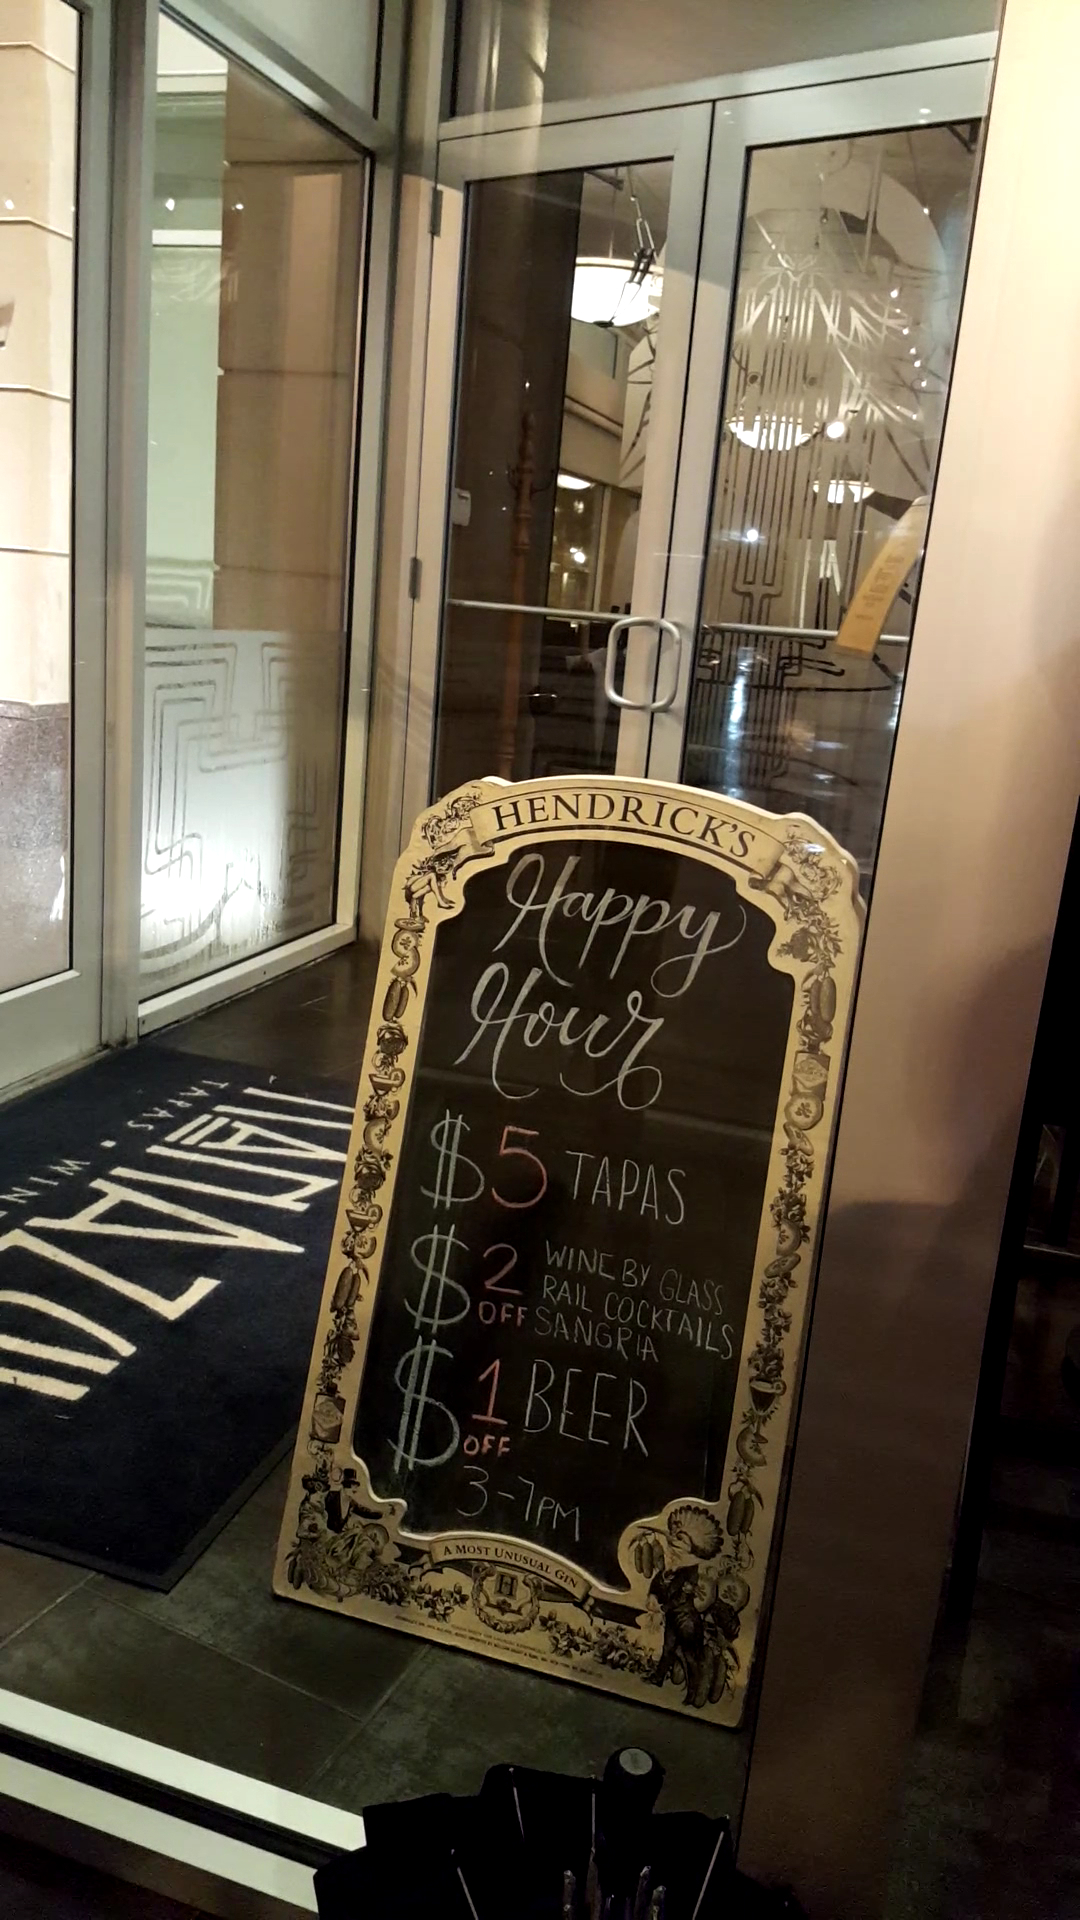 HENDRICK'S
Happy
Hour
$5 TAPAS
$2 OFF
WINE BY GLASS
RAIL COCKTAILS
SANGRIA
$1 OFF BEER
3-7PM
A MOST UNUSUAL GIN
H
TAPAS • WIN